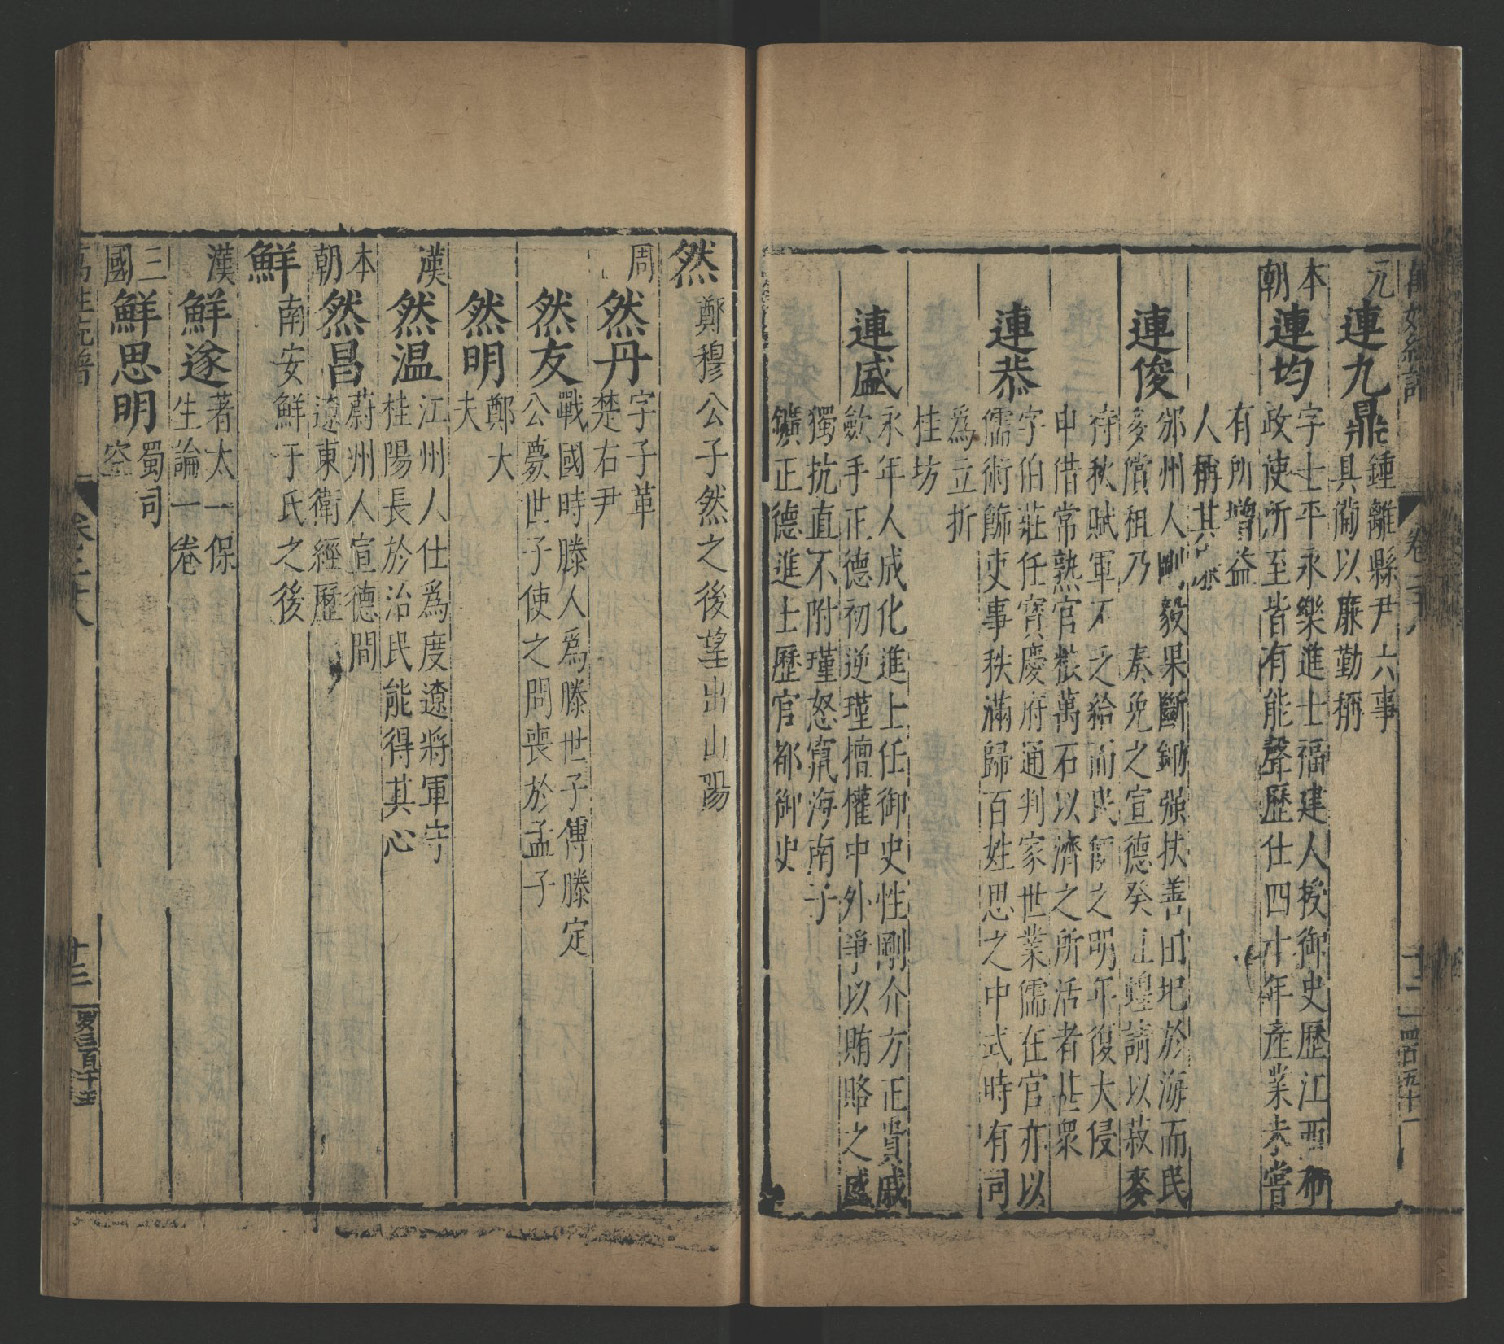 元
連九鼎
鍾離縣尹六事
具備以廉勤稱
本
朝
連均
字士平永樂進士福建人授御史歷江西布
政使所至皆有能聲歷仕四十年產業未嘗
有所增益
人稱其
連俊
邠州人剛毅果斷鋤強扶善田圯於海而民
多償租乃奏免之宣德癸丑蝗請以菽麥
存秋賦軍不乏給而民
申借常熟官粮萬石以濟之所活者甚眾
連恭
字伯莊任寶慶府通判家世業儒在官亦以
儒術飾吏事秩滿歸百姓思之中式時有司
為立折
桂坊
連盛
永年人成化進士任御史性剛介方正貴戚
斂手正德初逆瑾擅權中外爭以賄賂之盛
獨抗直不附瑾怒竄海南子
鑛正德進士歷官都御史
然
鄭穆公子然之後望出山陽
周
然丹
字子革
楚右尹
然友
戰國時滕人為滕世子傅滕定
公薨世子使之問喪於孟子
然明
鄭大
夫
漢
然温
江州人仕為度遼將軍守
桂陽長於治民能得其心
本
朝
然昌
蔚州人宣德間
遼東衛經歷
鮮
南安鮮于氏之後
漢
鮮遂
著太一保
生論一卷
三
國
鮮思明
蜀司
空
十三